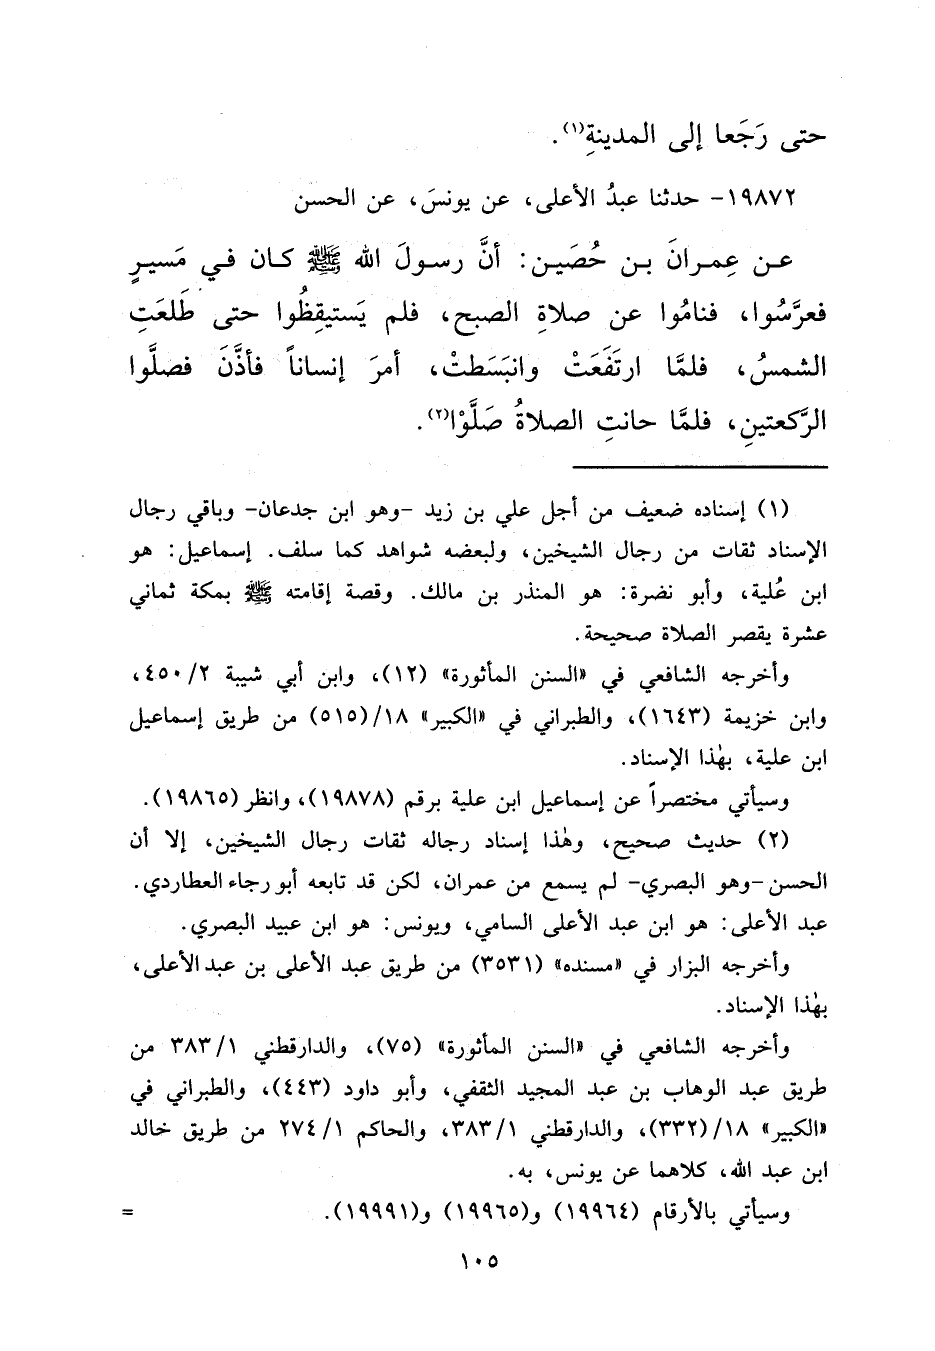 حتى رَجَعا إلى المدينةِ(١).
١٩٨٧٢- حدثنا عبدُ الأعلى، عن يونسَ، عن الحسن
عن عِمرانَ بن حُصَين: أنَّ رسولَ الله ﷺ كان في مَسيرٍ
فعرَّسُوا، فنامُوا عن صلاةِ الصبح، فلم يَستيقِظُوا حتى طَلعَتِ
الشمسُ، فلمَّا ارتَفَعَتْ وانبَسَطتْ، أمرَ إنساناً فأذَّنَ فصلَّوا
الرَّكعتينِ، فلمَّا حانتِ الصلاةُ صَلَّوْا(٢).
(١) إسناده ضعيف من أجل علي بن زيد -وهو ابن جدعان- وباقي رجال
الإسناد ثقات من رجال الشيخين، ولبعضه شواهد كما سلف. إسماعيل: هو
ابن عُلية، وأبو نضرة: هو المنذر بن مالك. وقصة إقامته ﷺ بمكة ثماني
عشرة يقصر الصلاة صحيحة.
وأخرجه الشافعي في «السنن المأثورة» (١٢)، وابن أبي شيبة ٤٥٠/٢،
وابن خزيمة (١٦٤٣)، والطبراني في «الكبير» ١٨/(٥١٥) من طريق إسماعيل
ابن علية، بهٰذا الإسناد.
وسيأتي مختصراً عن إسماعيل ابن علية برقم (١٩٨٧٨)، وانظر (١٩٨٦٥).
(٢) حديث صحيح، وهٰذا إسناد رجاله ثقات رجال الشيخين، إلا أن
الحسن -وهو البصري- لم يسمع من عمران، لكن قد تابعه أبو رجاء العطاردي.
عبد الأعلى: هو ابن عبد الأعلى السامي، ويونس: هو ابن عبيد البصري.
وأخرجه البزار في «مسنده» (٣٥٣١) من طريق عبد الأعلى بن عبد الأعلى،
بهٰذا الإسناد.
وأخرجه الشافعي في «السنن المأثورة» (٧٥)، والدارقطني ٣٨٣/١ من
طريق عبد الوهاب بن عبد المجيد الثقفي، وأبو داود (٤٤٣)، والطبراني في
«الكبير» ١٨/(٣٣٢)، والدارقطني ٣٨٣/١، والحاكم ٢٧٤/١ من طريق خالد
ابن عبد الله، كلاهما عن يونس، به.
وسيأتي بالأرقام (١٩٩٦٤) و(١٩٩٦٥) و(١٩٩٩١). =
١٠٥